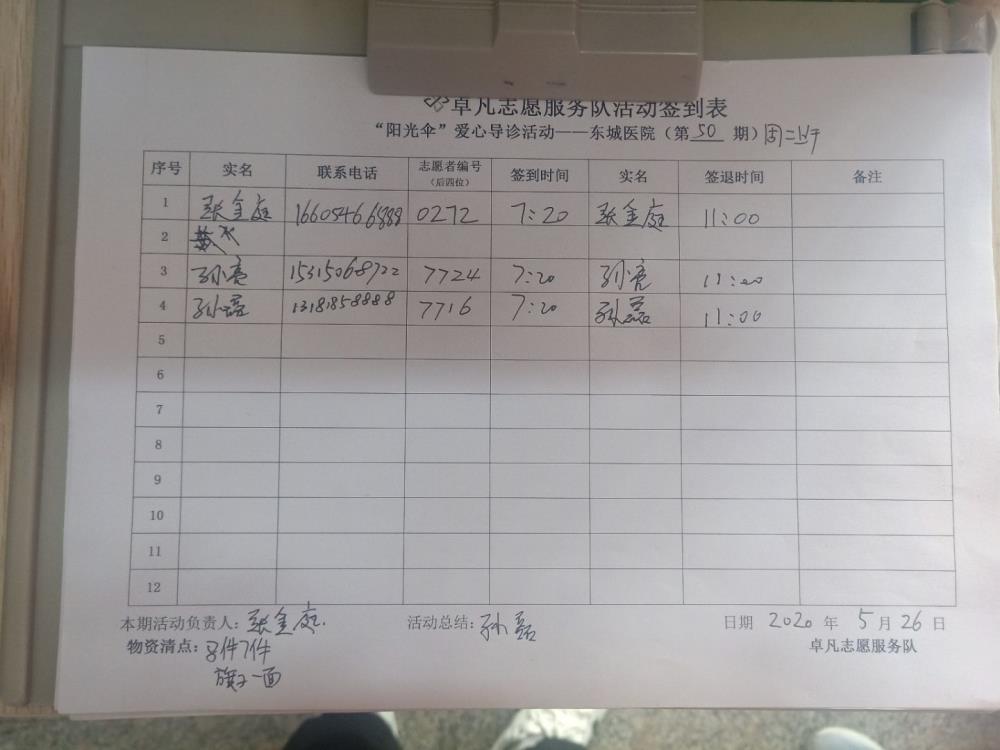 卓凡志愿服务队活动签到表
“阳光伞”爱心导诊活动——东城医院（第50期）周二上午
序号 实名 联系电话 志愿者编号（后四位） 签到时间 实名 签退时间 备注
1 张金庭 16605466888 0272 7:20 张金庭 11:00
2
3 孙亮 15315068722 7724 7:20 孙亮 11:00
4 孙磊 13181858888 7716 7:20 孙磊 11:00
5
6
7
8
9
10
11
12
本期活动负责人：张金庭. 活动总结：孙磊 日期 2020 年 5 月 26 日
物资清点：马件7件 卓凡志愿服务队
旗子一面